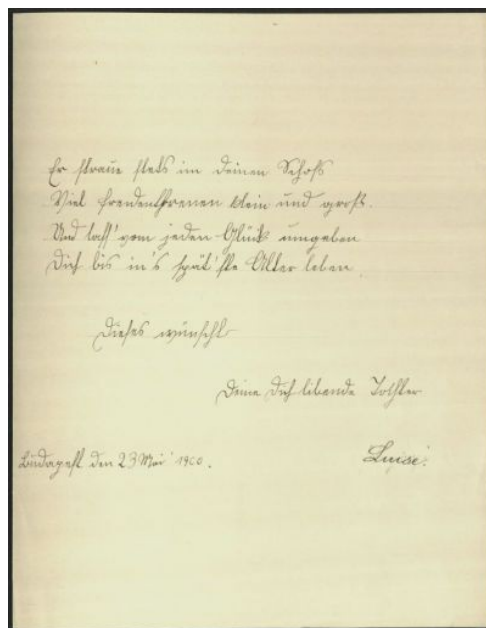 Er straue stets im deinen Schoß
Viel freudenthrenen klein und groß.
Und lass' vom jeden Glück umgeben
Dich bis in's spät'ste Alter leben.
Dieses wünscht
Deine Dich libende Tochter
Budapest, den 23 Mai 1900.
Luise.